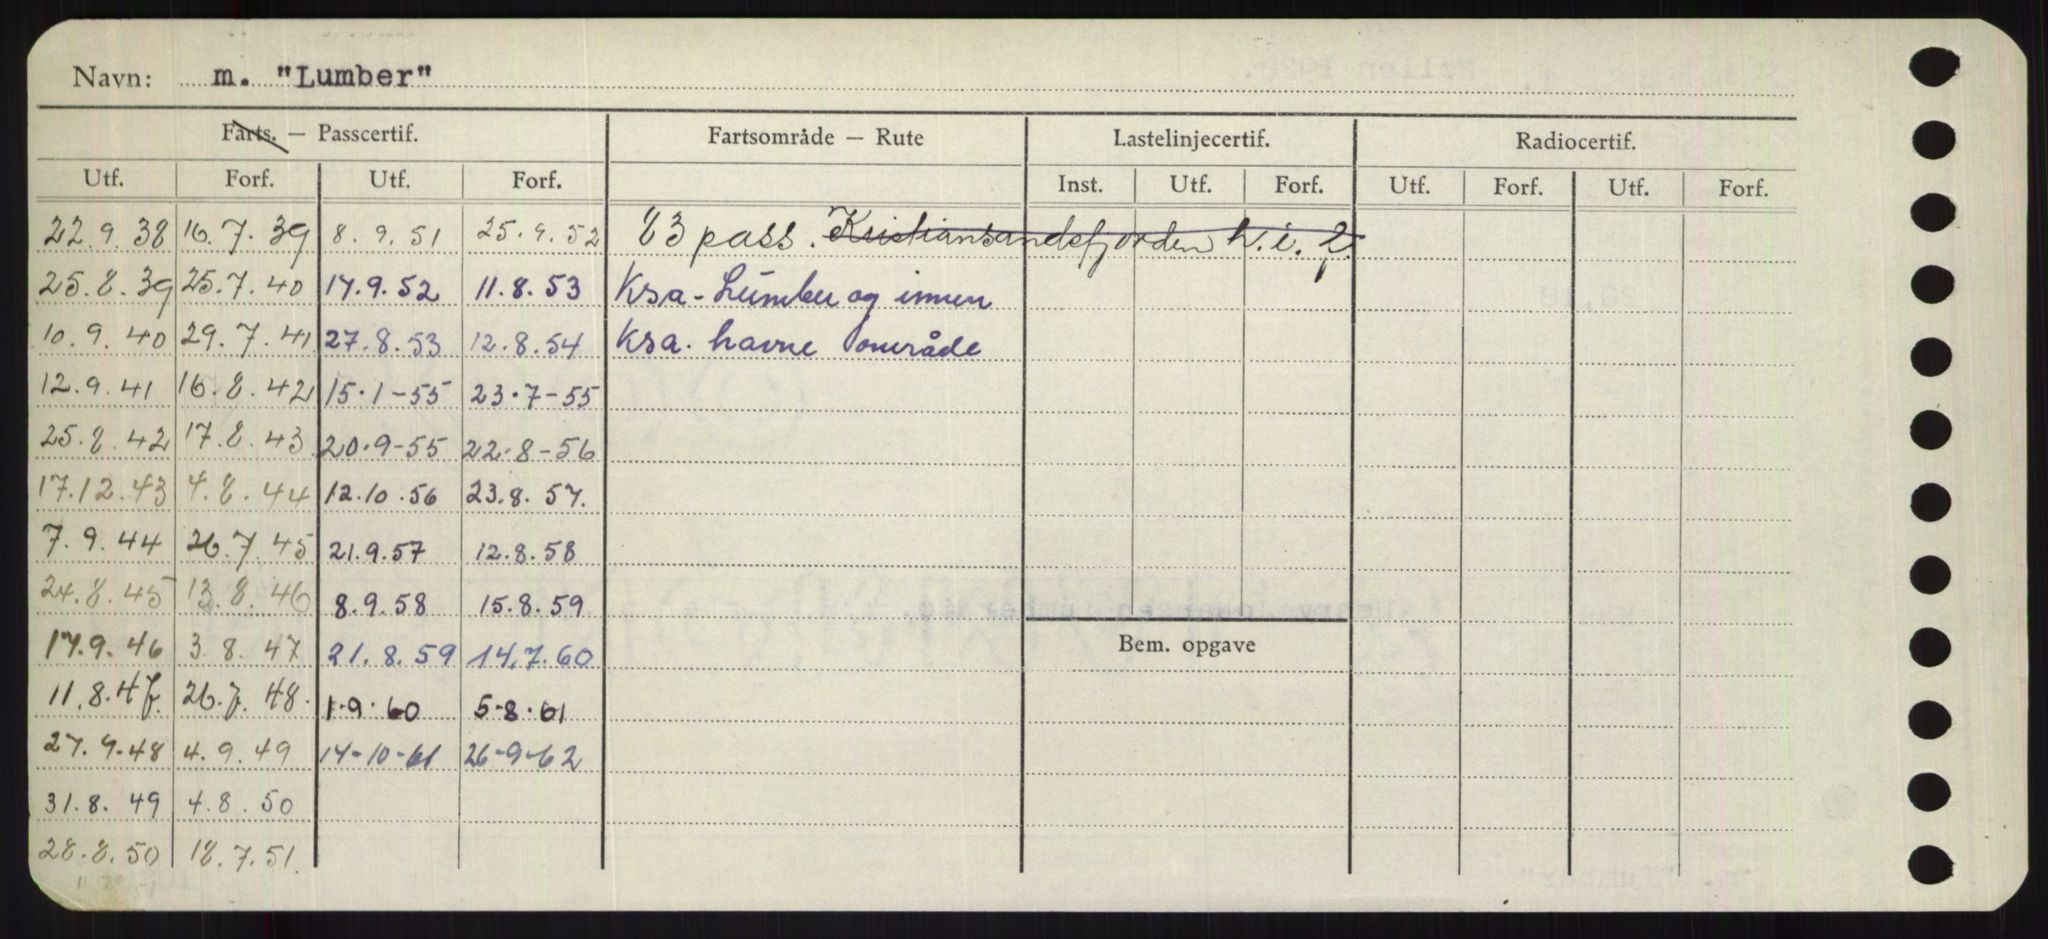 Navn: m. "Lumber"
Farts. — Passcertif. Fartsområde — Rute Lastelinjecertif. Radiocertif.
Utf. Forf. Utf. Forf. Inst. Utf. Forf. Utf. Forf. Utf. Forf.
22.9.38 16.7.39 8.9.51 25.9.52 83 pass. Kristiansandsfjorden h.i.
25.8.39 25.7.40 17.9.52 11.8.53 Ksa - Lumber og innen
10.9.40 29.7.41 27.8.53 12.8.54 Ksa. havne område
12.9.41 16.8.42 15.1-55 23.7-55
25.8.42 17.8.43 20.9-55 22.8-56
17.12.43 4.8.44 12.10.56 23.8.57.
7.9.44 26.7.45 21.9.57 12.8.58
24.8.45 13.8.46 8.9.58 15.8.59
17.9.46 3.8.47 21.8.59 14.7.60 Bem. opgave
11.8.47. 26.7.48. 1.9.60 5-8.61
27.9.48 4.9.49 14-10-61 26-9-62
31.8.49 4.8.50
28.8.50 18.7.51.